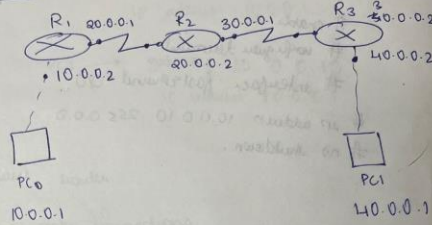 R1 20.0.0.1 R2 30.0.0.1 R3 30.0.0.2
10.0.0.2 20.0.0.2 40.0.0.2
PC0 PC1
10.0.0.1 40.0.0.1